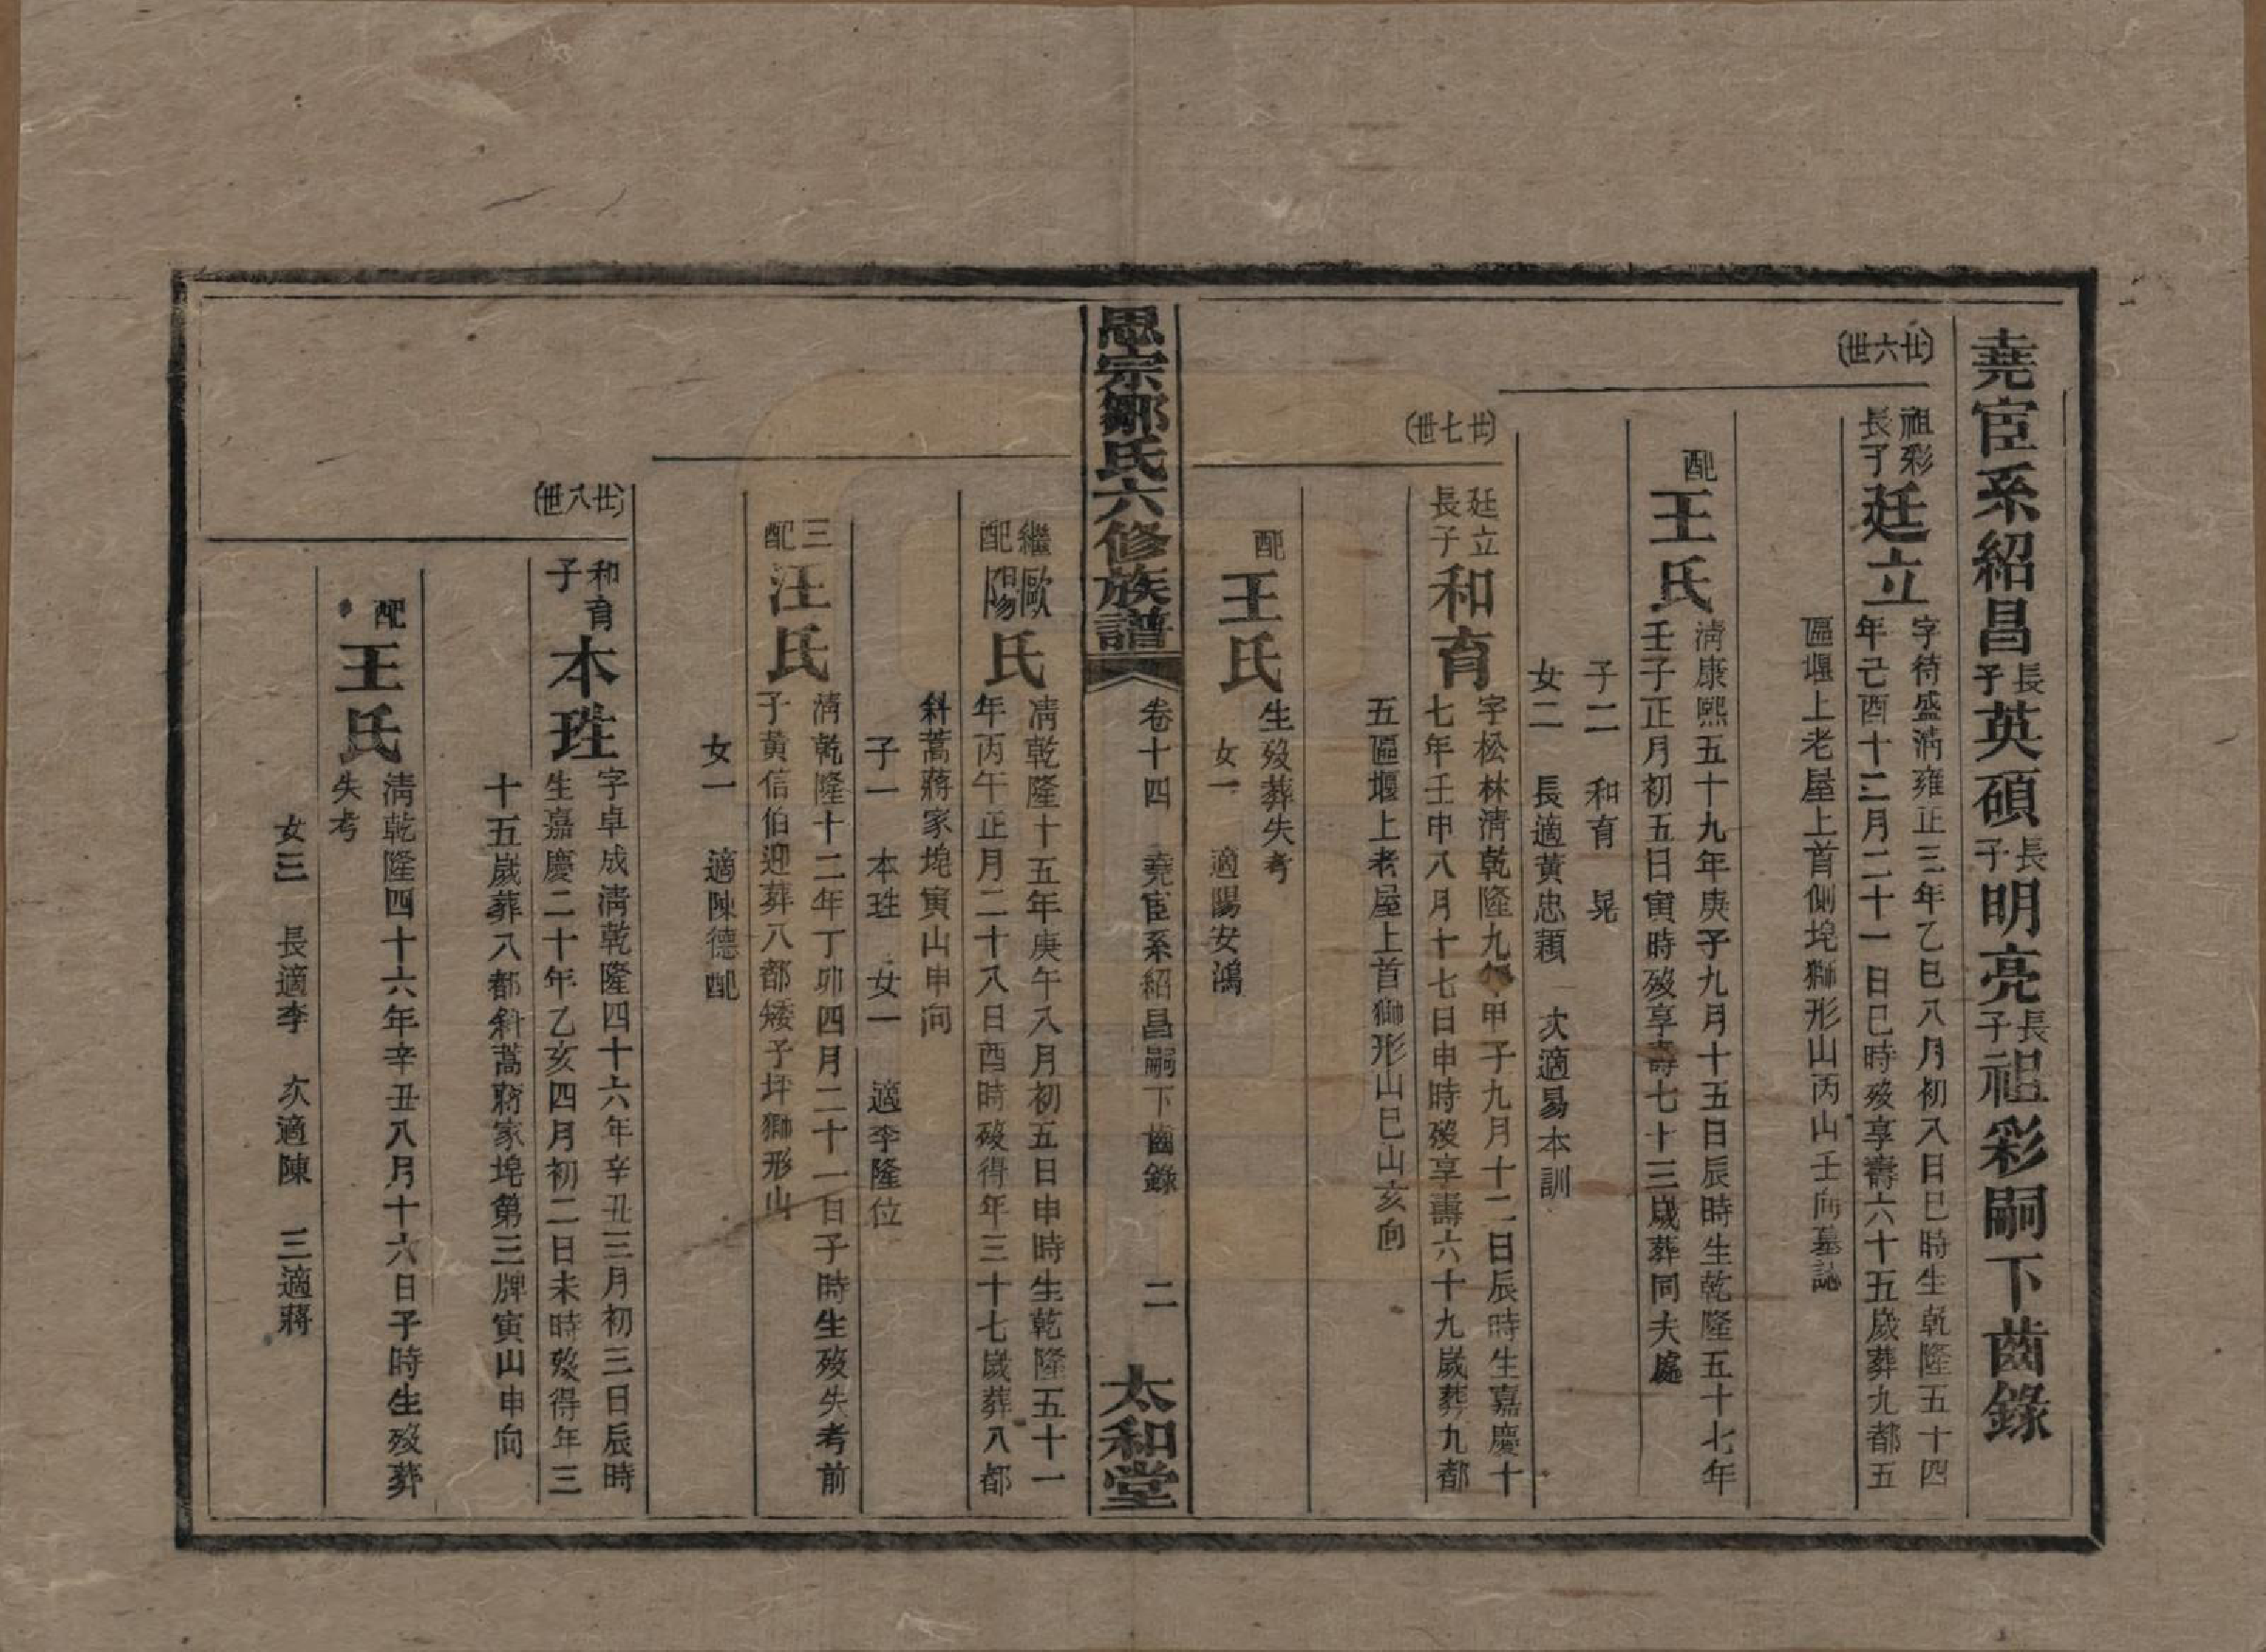 堯宦系紹昌長子英碩長子明亮長子祖彩嗣下齒錄
(廿六世)
祖彩
長子
廷立
字待盛淸雍正三年乙巳八月初八日巳時生乾隆五十四
年己酉十二月二十一日巳時歿享壽六十五歲葬九都五
區堰上老屋上首側垸獅形山丙山壬向墓誌
配
王氏
淸康熙五十九年庚子九月十五日辰時生乾隆五十七年
壬子正月初五日寅時歿享壽七十三歲葬同夫處
子二 和育 晃
女二 長適黃忠穎 次適易本訓
(廿七世)
廷立
長子
和育
字松林淸乾隆九年甲子九月十二日辰時生嘉慶十
七年壬申八月十七日申時歿享壽六十九歲葬九都
五區堰上老屋上首獅形山巳山亥向
配
王氏
生歿葬失考
女一 適陽安鴻
思宗鄒氏六修族譜
卷十四 堯宦系紹昌嗣下齒錄 二
太和堂
繼
配
歐陽氏
淸乾隆十五年庚午八月初五日申時生乾隆五十一
年丙午正月二十八日酉時歿得年三十七歲葬八都
斜蒿蔣家垸寅山申向
子一 本珄 女一 適李隆位
三
配
汪氏
淸乾隆十二年丁卯四月二十一日子時生歿失考前
子黃信伯迎葬八都矮子坪獅形山
女一 適陳德配
(廿八世)
和育
子
本珄
字卓成淸乾隆四十六年辛丑三月初三日辰時
生嘉慶二十年乙亥四月初二日未時歿得年三
十五歲葬八都斜蒿蔣家垸第三牌寅山申向
配
王氏
淸乾隆四十六年辛丑八月十六日子時生歿葬
失考
女三 長適李 次適陳 三適蔣